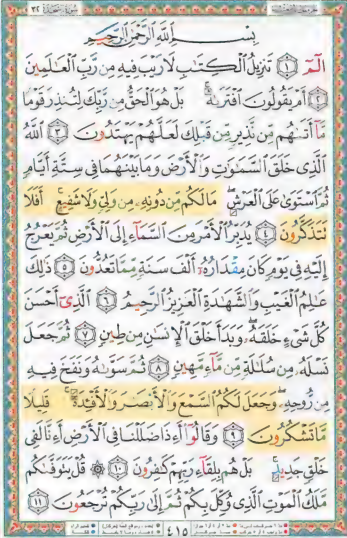 سورة السجدة ٣٢
بِسْمِ اللَّهِ الرَّحْمَٰنِ الرَّحِيمِ
الٓمٓ ١ تَنزِيلُ ٱلْكِتَٰبِ لَا رَيْبَ فِيهِ مِن رَّبِّ ٱلْعَٰلَمِينَ
٢ أَمْ يَقُولُونَ ٱفْتَرَىٰهُ ۚ بَلْ هُوَ ٱلْحَقُّ مِن رَّبِّكَ لِتُنذِرَ قَوْمًا
مَّآ أَتَىٰهُم مِّن نَّذِيرٍ مِّن قَبْلِكَ لَعَلَّهُمْ يَهْتَدُونَ ٣ ٱللَّهُ
ٱلَّذِى خَلَقَ ٱلسَّمَٰوَٰتِ وَٱلْأَرْضَ وَمَا بَيْنَهُمَا فِى سِتَّةِ أَيَّامٍ
ثُمَّ ٱسْتَوَىٰ عَلَى ٱلْعَرْشِ ۖ مَا لَكُم مِّن دُونِهِۦ مِن وَلِىٍّ وَلَا شَفِيعٍ ۚ أَفَلَا
تَتَذَكَّرُونَ ٤ يُدَبِّرُ ٱلْأَمْرَ مِنَ ٱلسَّمَآءِ إِلَى ٱلْأَرْضِ ثُمَّ يَعْرُجُ
إِلَيْهِ فِى يَوْمٍ كَانَ مِقْدَارُهُۥٓ أَلْفَ سَنَةٍ مِّمَّا تَعُدُّونَ ٥ ذَٰلِكَ
عَٰلِمُ ٱلْغَيْبِ وَٱلشَّهَٰدَةِ ٱلْعَزِيزُ ٱلرَّحِيمُ ٦ ٱلَّذِىٓ أَحْسَنَ
كُلَّ شَىْءٍ خَلَقَهُۥ ۖ وَبَدَأَ خَلْقَ ٱلْإِنسَٰنِ مِن طِينٍ ٧ ثُمَّ جَعَلَ
نَسْلَهُۥ مِن سُلَٰلَةٍ مِّن مَّآءٍ مَّهِينٍ ٨ ثُمَّ سَوَّىٰهُ وَنَفَخَ فِيهِ
مِن رُّوحِهِۦ ۖ وَجَعَلَ لَكُمُ ٱلسَّمْعَ وَٱلْأَبْصَٰرَ وَٱلْأَفْـِٔدَةَ ۚ قَلِيلًا
مَّا تَشْكُرُونَ ٩ وَقَالُوٓا۟ أَءِذَا ضَلَلْنَا فِى ٱلْأَرْضِ أَءِنَّا لَفِى
خَلْقٍ جَدِيدٍۭ ۚ بَلْ هُم بِلِقَآءِ رَبِّهِمْ كَٰفِرُونَ ١٠ ۞ قُلْ يَتَوَفَّىٰكُم
مَّلَكُ ٱلْمَوْتِ ٱلَّذِى وُكِّلَ بِكُمْ ثُمَّ إِلَىٰ رَبِّكُمْ تُرْجَعُونَ ١١
٤١٥